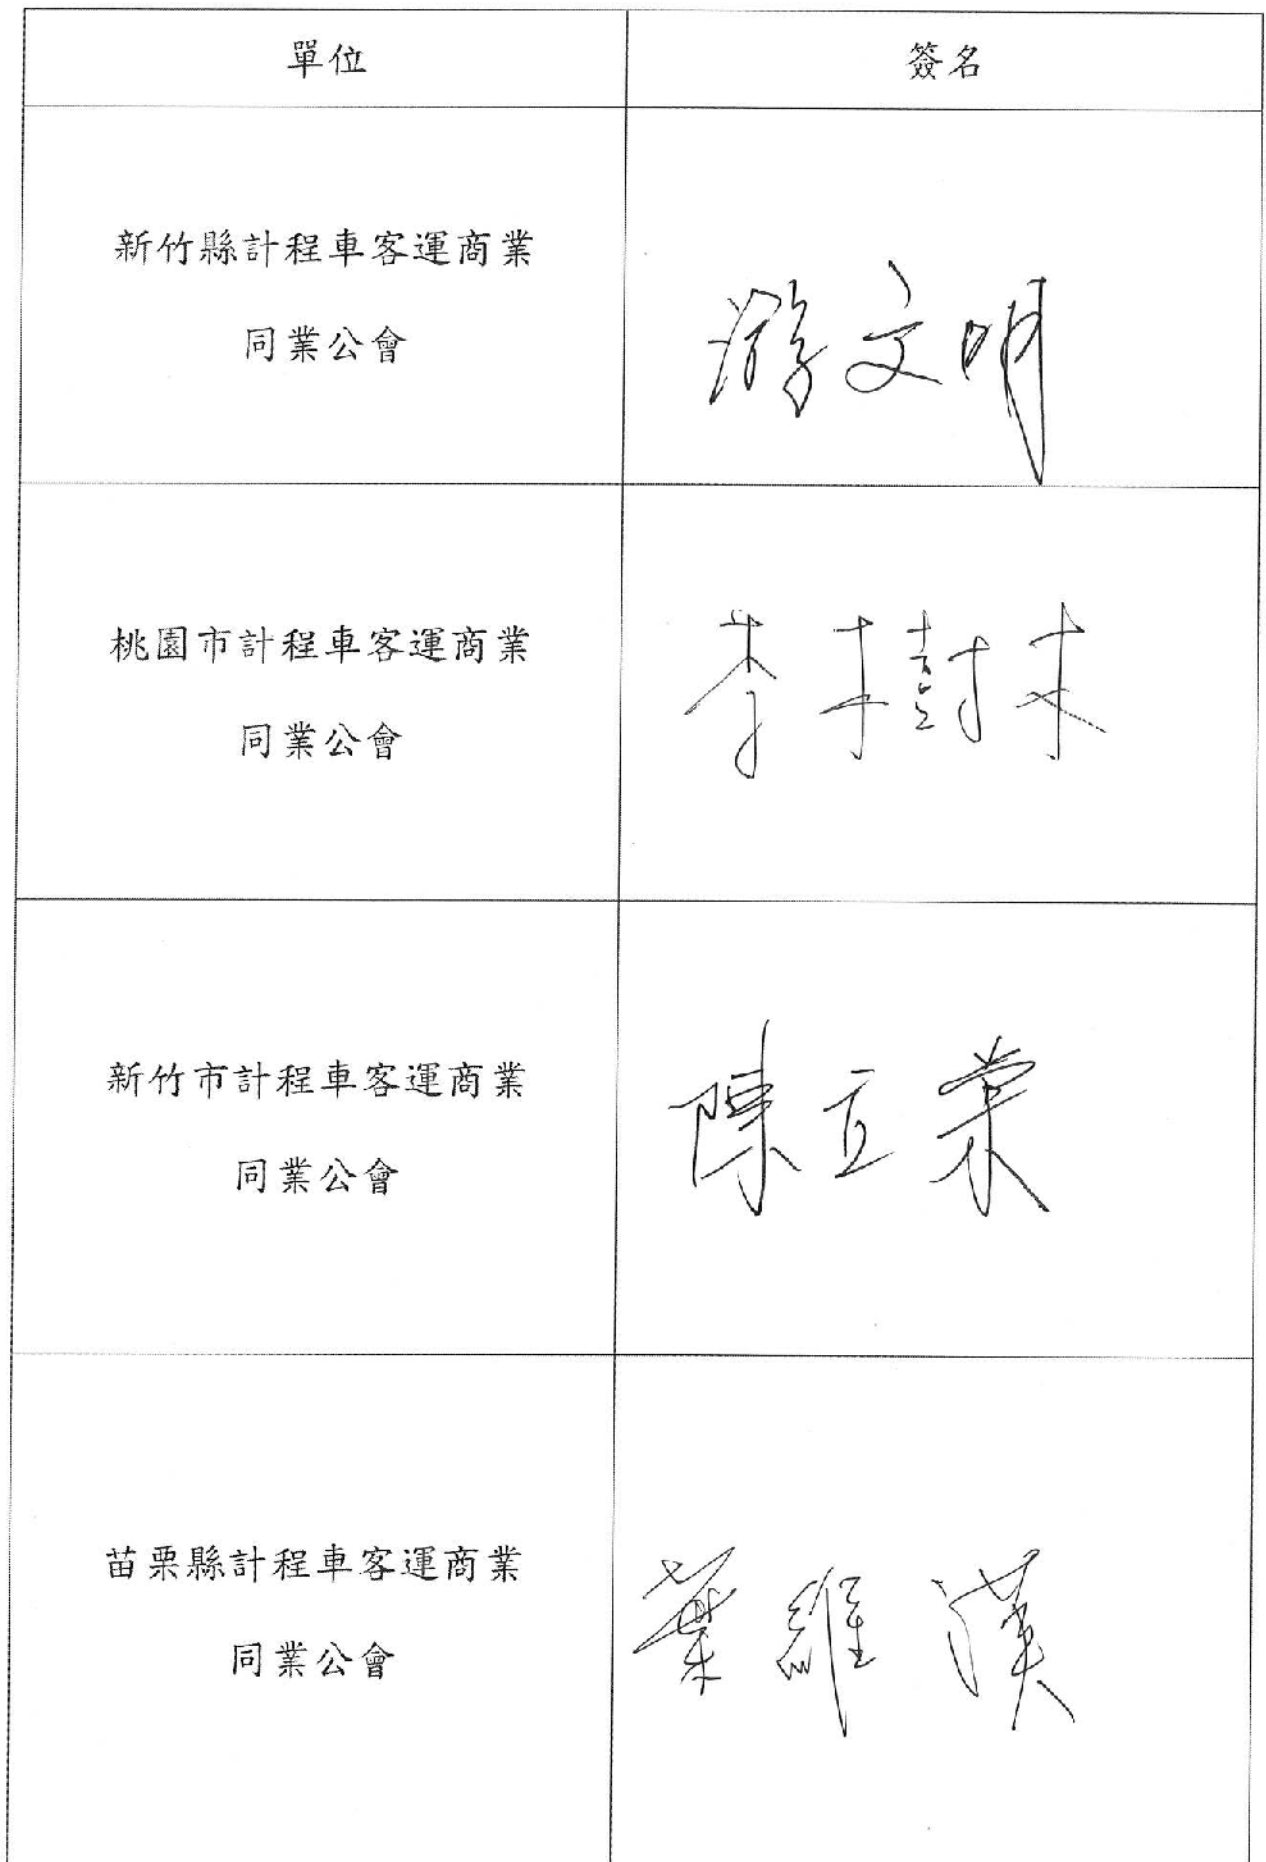 單位
簽名
新竹縣計程車客運商業
同業公會
游文明
桃園市計程車客運商業
同業公會
李樹木
新竹市計程車客運商業
同業公會
陳立棠
苗栗縣計程車客運商業
同業公會
葉維漢